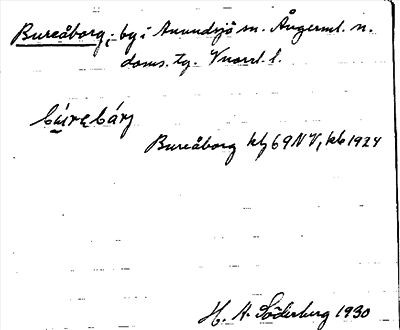 Bureåborg, by i Anundsjö sn. Ångerml. n.
doms. tg. Vnorrl. l.
búrebárj
Bureåborg kbj 69 NV, kb 1924
H. A. Söderberg 1930